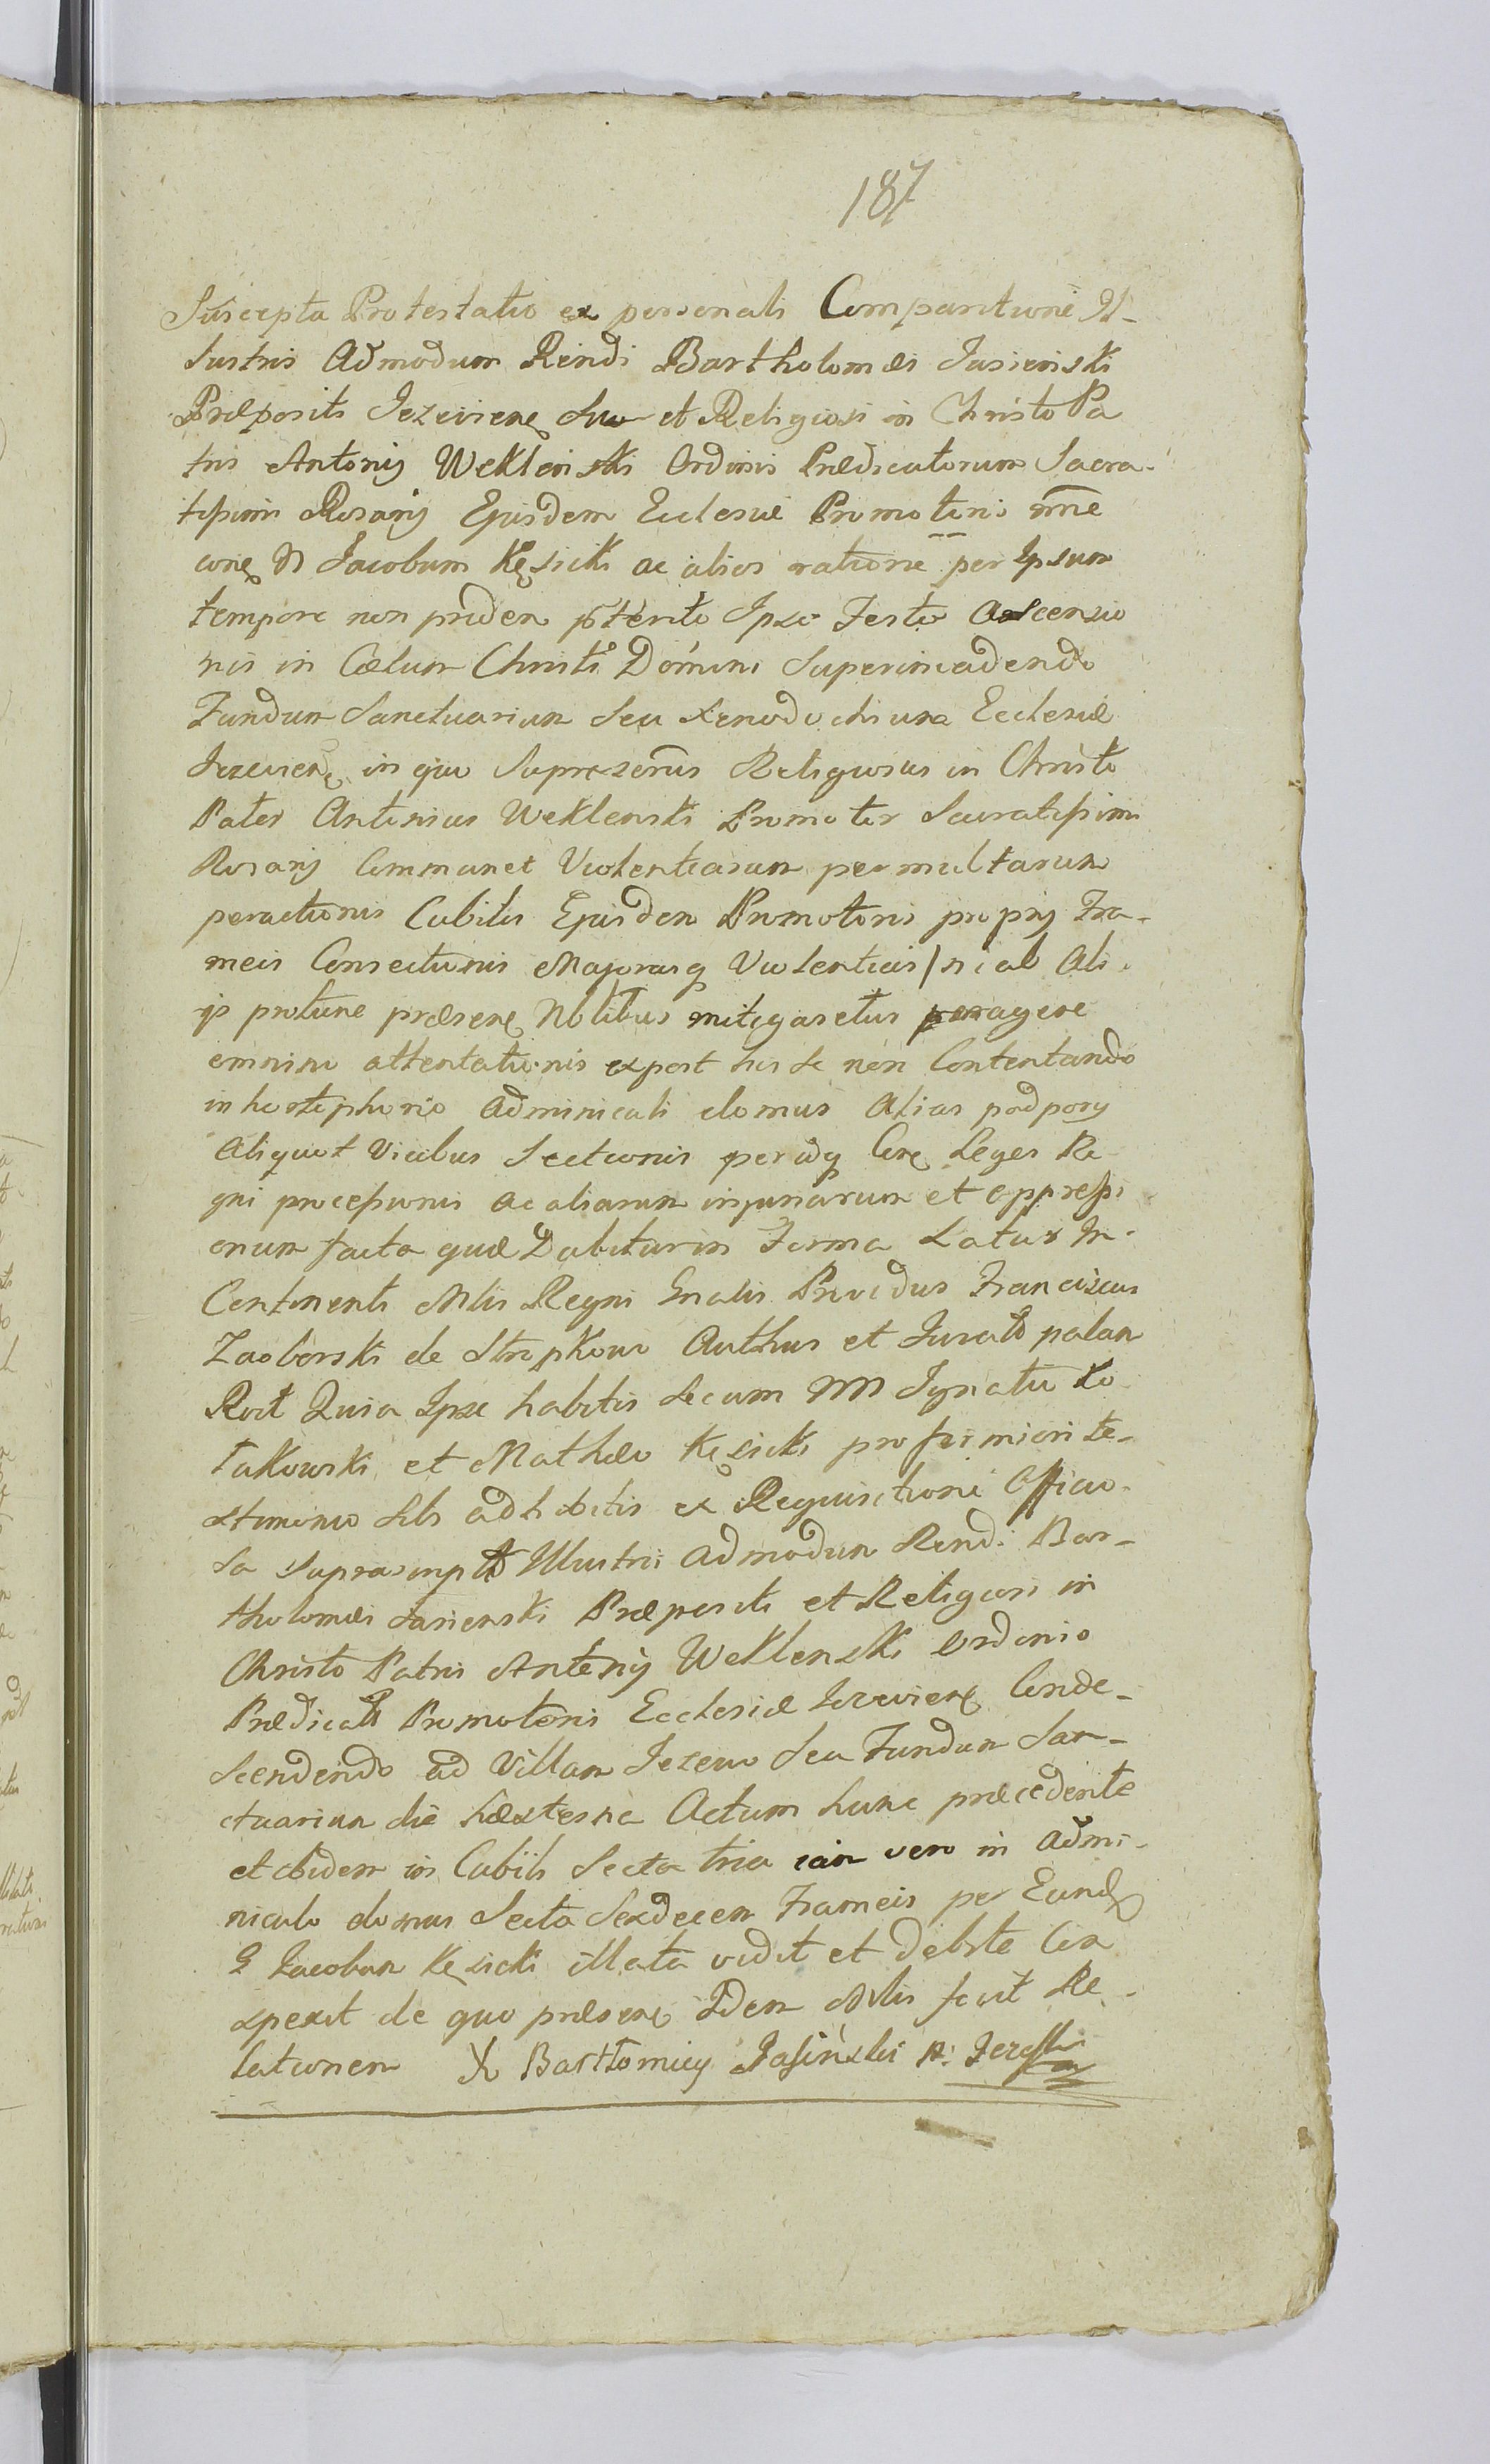 187
Suscepta Protestatio ex personali Comparitione Il-
lustris Admodum Rendi Bartholomæi Jasienski
Præpositi Jezeviens suo et Religiosi in Christo Pa
tris Antonij Weklenski Ordinis Prædicatorum Sacra-
tissimi Rosarij Ejusdem Ecclesiæ Promotoris nne
cone N Jacobum Kęsicki ac alios ratione per Ipsum
tempore non pridem pterito Ipso Festo Ascensio
nis in Cœlum Christi Domini Superinvadendo
Fundum Sanctuarium Seu Xenodochium Ecclesiæ
Jezeviens in quo Supraserus Religiosus in Christo
Pater Antonius Weklenski Promotor Sacratissimi
Rosarij Commanet Violentiarum permultarum
peractionis Cubilis Ejusdem Promotoris proprij Fra-
meis Consectionis Majorasq Violentias / ni ab Ali-
js protunc præsens Nbilibus mitigaretus peragere
omnino attentationis expost his se non Contentando
in hostiphorio Adminicali domus Alias podpory
Aliquot Vicibus Sectionis peridq Cone Leges Re
gni processionis ac aliarum injuriarum et oppressi
onum facta quæ Dabitur in Forma Latius In-
Continenti Mlis Regni Gnalis Providus Franciscus
Zaoborski de Strzpkowo Authus et Jurato palam
Rcit Quia Ipse habitis Secum NN Ignatio Ko
takowski et Mathæo Kęsicki pro firmiori te-
stimonio Sibi adhibitis ex Requisitione Officio-
sa suprascripto Illustris Admodum Rendi Bar-
tholomæi Jasienski Præpositi et Religiosi in
Christo Patris Antonij Weklenski Ordinis
Prædicato Promotoris Ecclesiæ Jezeviens Conde-
Scendendo ad Villam Jezewo Seu Fundum San-
ctuarium die hæsterna Actum hunc præcedente
et ibidem in Cubili Secta tria iam vero in Admi-
niculo domus Secta Sexdecem Frameis per Eund
G Jacobum Kęsicki illata vidit et debite Con
spexit de quo præsens Idem Mlis fecit Re-
lationem X Bartłomiey Jasiński P: